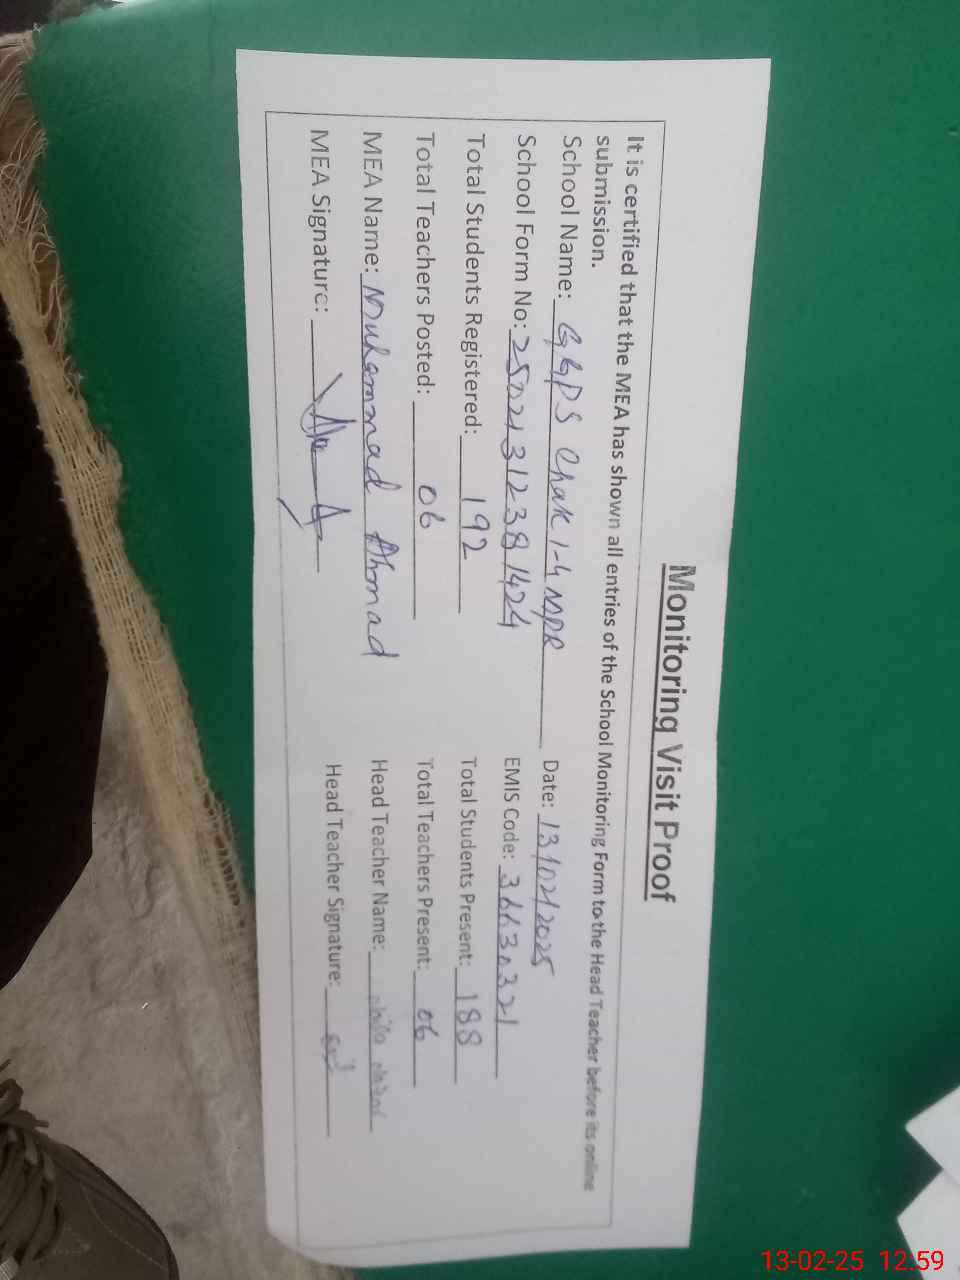 Monitoring Visit Proof
It is certified that the MEA has shown all entries of the School Monitoring Form to the Head Teacher before its online
submission.
School Name: GGPS Chak 1-4 MPR Date: 13/02/2025
School Form No: 25021312381424 EMIS Code: 36630321
Total Students Registered: 192 Total Students Present: 188
Total Teachers Posted: 06 Total Teachers Present: 06
MEA Name: Muhammad Ahmad Head Teacher Name:
MEA Signature: Head Teacher Signature:
13-02-25 12.59